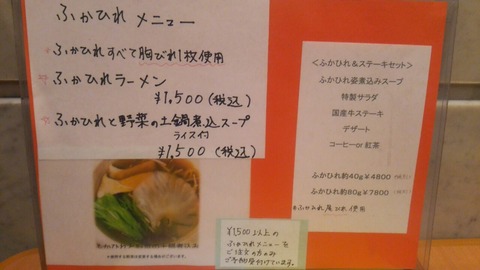 ふかひれ メニュー
☆ふかひれすべて胸びれ1枚使用
☆ふかひれラーメン
¥1,500(税込)
☆ふかひれと野菜の土鍋煮込スープ
ライス付
¥1,500(税込)
<ふかひれ&ステーキセット>
ふかひれ姿煮込みスープ
特製サラダ
国産牛ステーキ
デザート
コーヒーor 紅茶
ふかひれ約40g¥4800
ふかひれ約80g¥7800
※ふかひれ尾びれ使用
¥1,500以上の
ふかひれメニューを
ご注文の方のみ
ご予約受付けています。